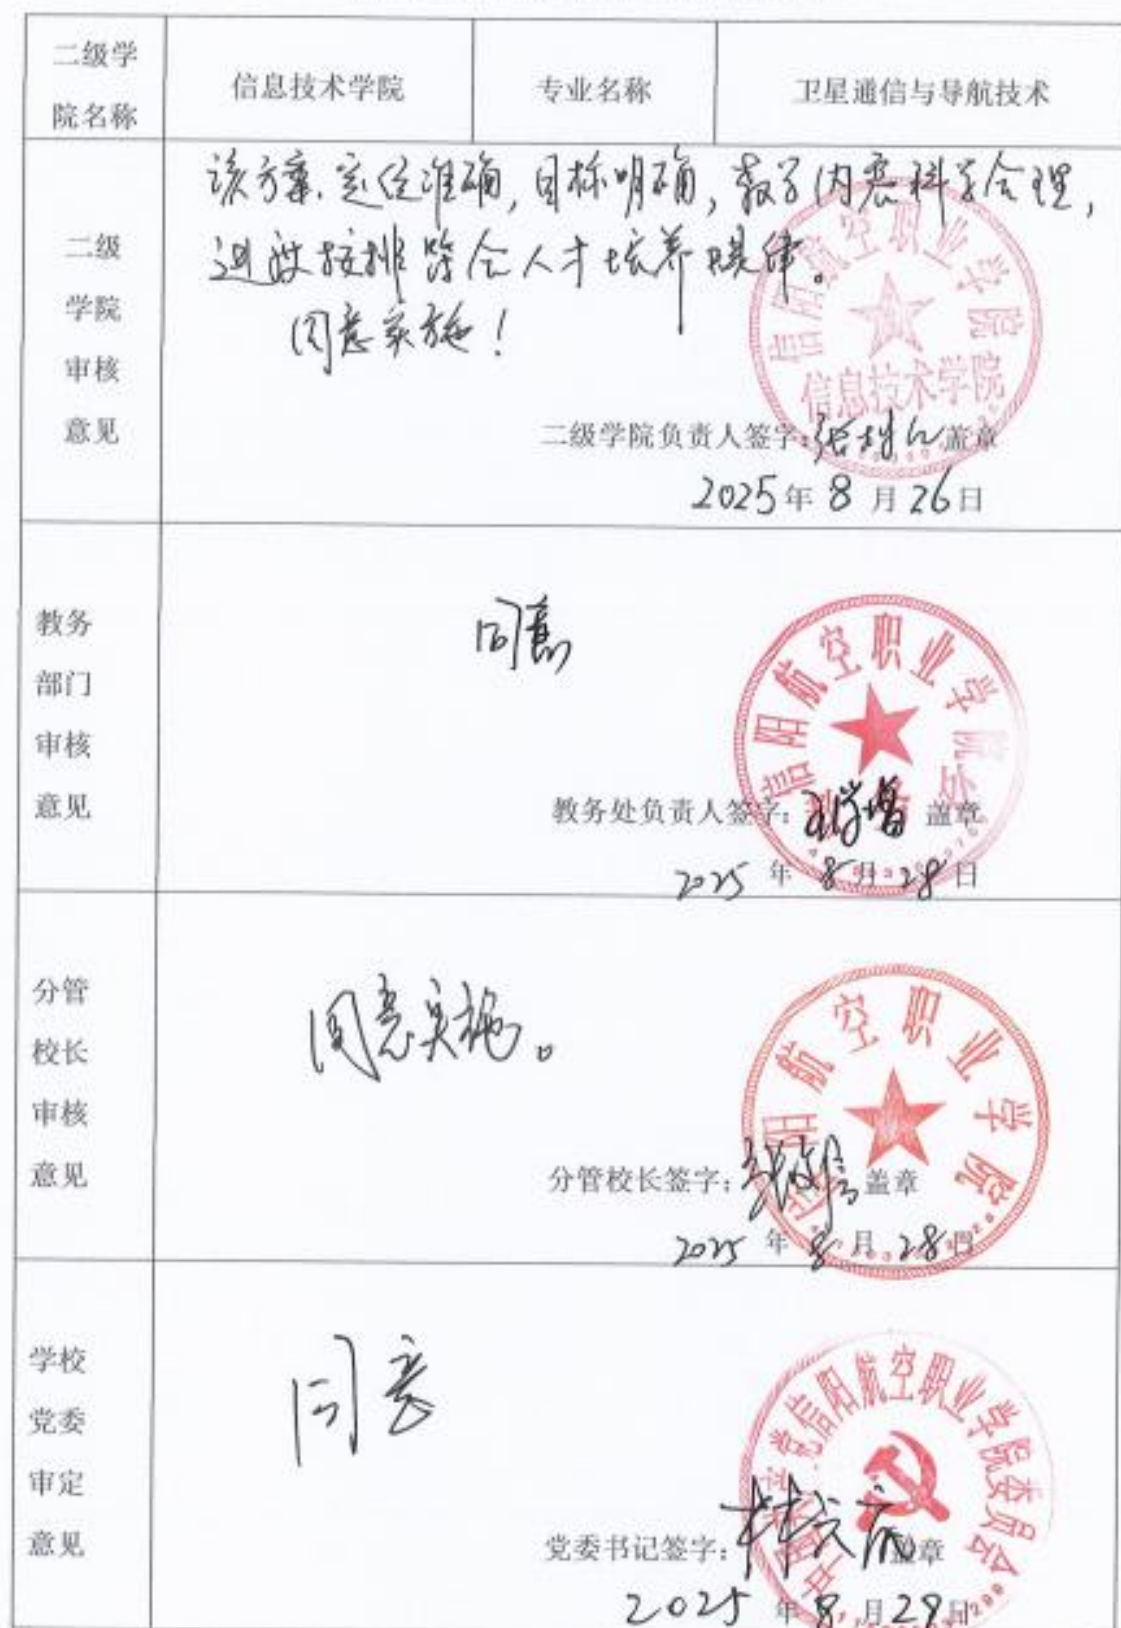 二级学
院名称
信息技术学院
专业名称
卫星通信与导航技术
二级
学院
审核
意见
该方案定位准确,目标明确,教学内容科学合理,
进度安排符合人才培养规律。
同意实施!
信阳航空职业学院
信息技术学院
二级学院负责人签字: 盖章
2025年8月26日
教务
部门
审核
意见
同意
信阳航空职业学院
教务处负责人签字: 盖章
2025年8月28日
分管
校长
审核
意见
同意实施。
信阳航空职业学院
分管校长签字: 盖章
2025年8月28日
学校
党委
审定
意见
同意
中国共产党信阳航空职业学院委员会
党委书记签字: 盖章
2025年8月29日